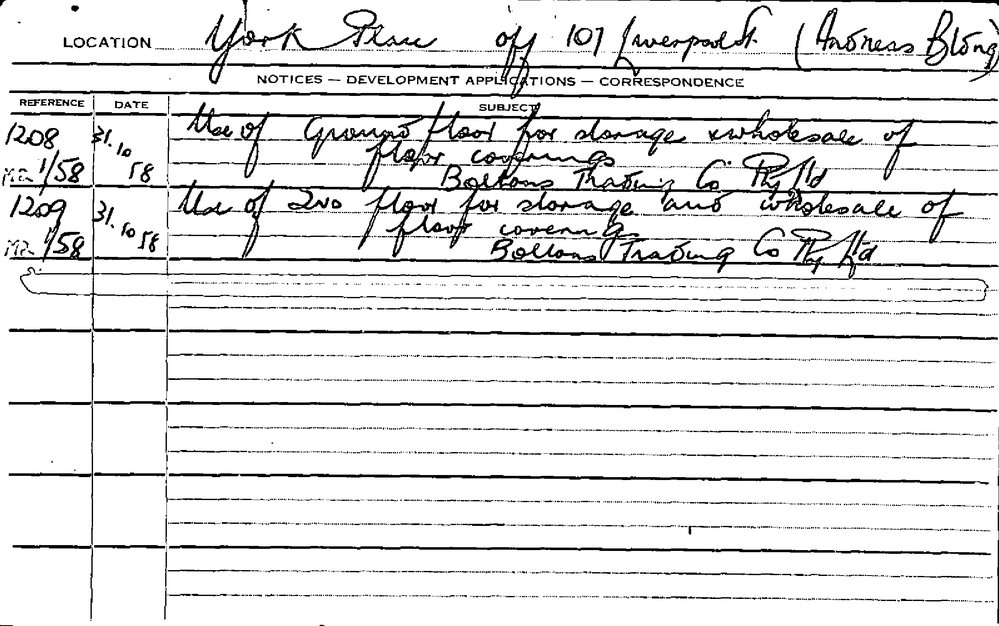 LOCATION York Place off 107 Liverpool St. (Andreas Bldng)
NOTICES — DEVELOPMENT APPLICATIONS — CORRESPONDENCE
REFERENCE DATE SUBJECT
1208 31.10 Use of Ground floor for storage & wholesale of
1/58 58 floor coverings
Boltons Trading Co. Pty Ltd
1209 31.10 Use of 2nd floor for storage and wholesale of
1/58 58 floor coverings
Boltons Trading Co Pty Ltd